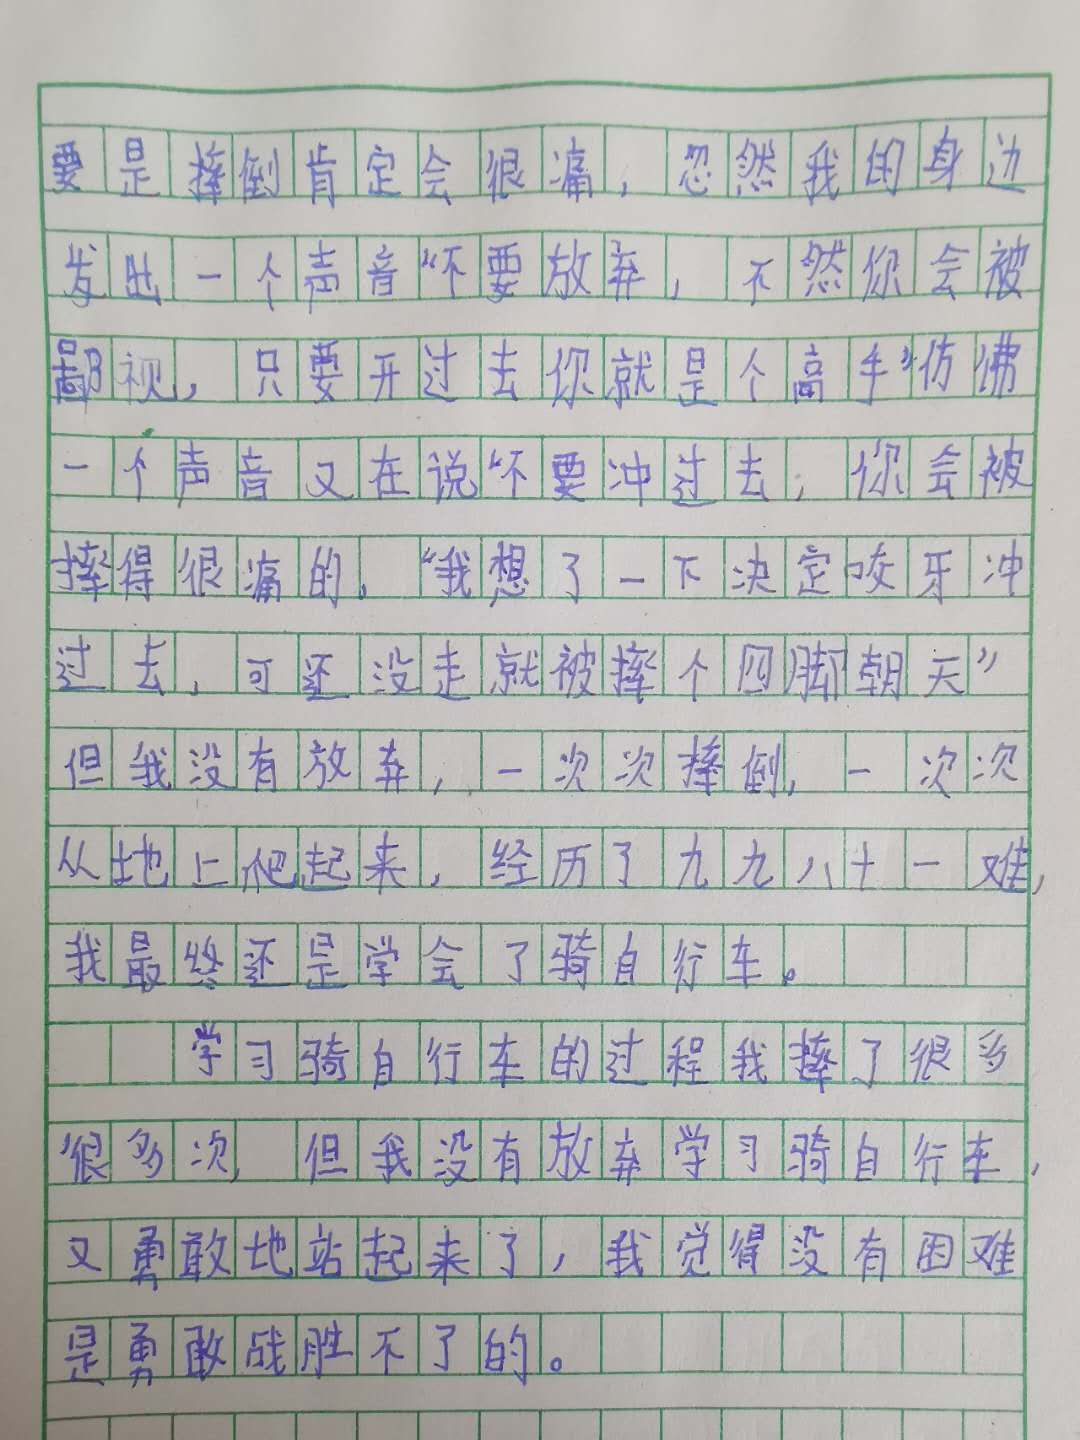 要是摔倒肯定会很痛，忽然我的身边
发出一个声音“不要放弃，不然你会被
鄙视，只要开过去你就是个高手”仿佛
一个声音又在说“不要冲过去，你会被
摔得很痛的。“我想了一下决定咬牙冲
过去，可还没走就被摔个四脚朝天”
但我没有放弃，一次次摔倒，一次次
从地上爬起来，经历了九九八十一难，
我最终还是学会了骑自行车。
学习骑自行车的过程我摔了很多
很多次，但我没有放弃学习骑自行车，
又勇敢地站起来了，我觉得没有困难
是勇敢战胜不了的。